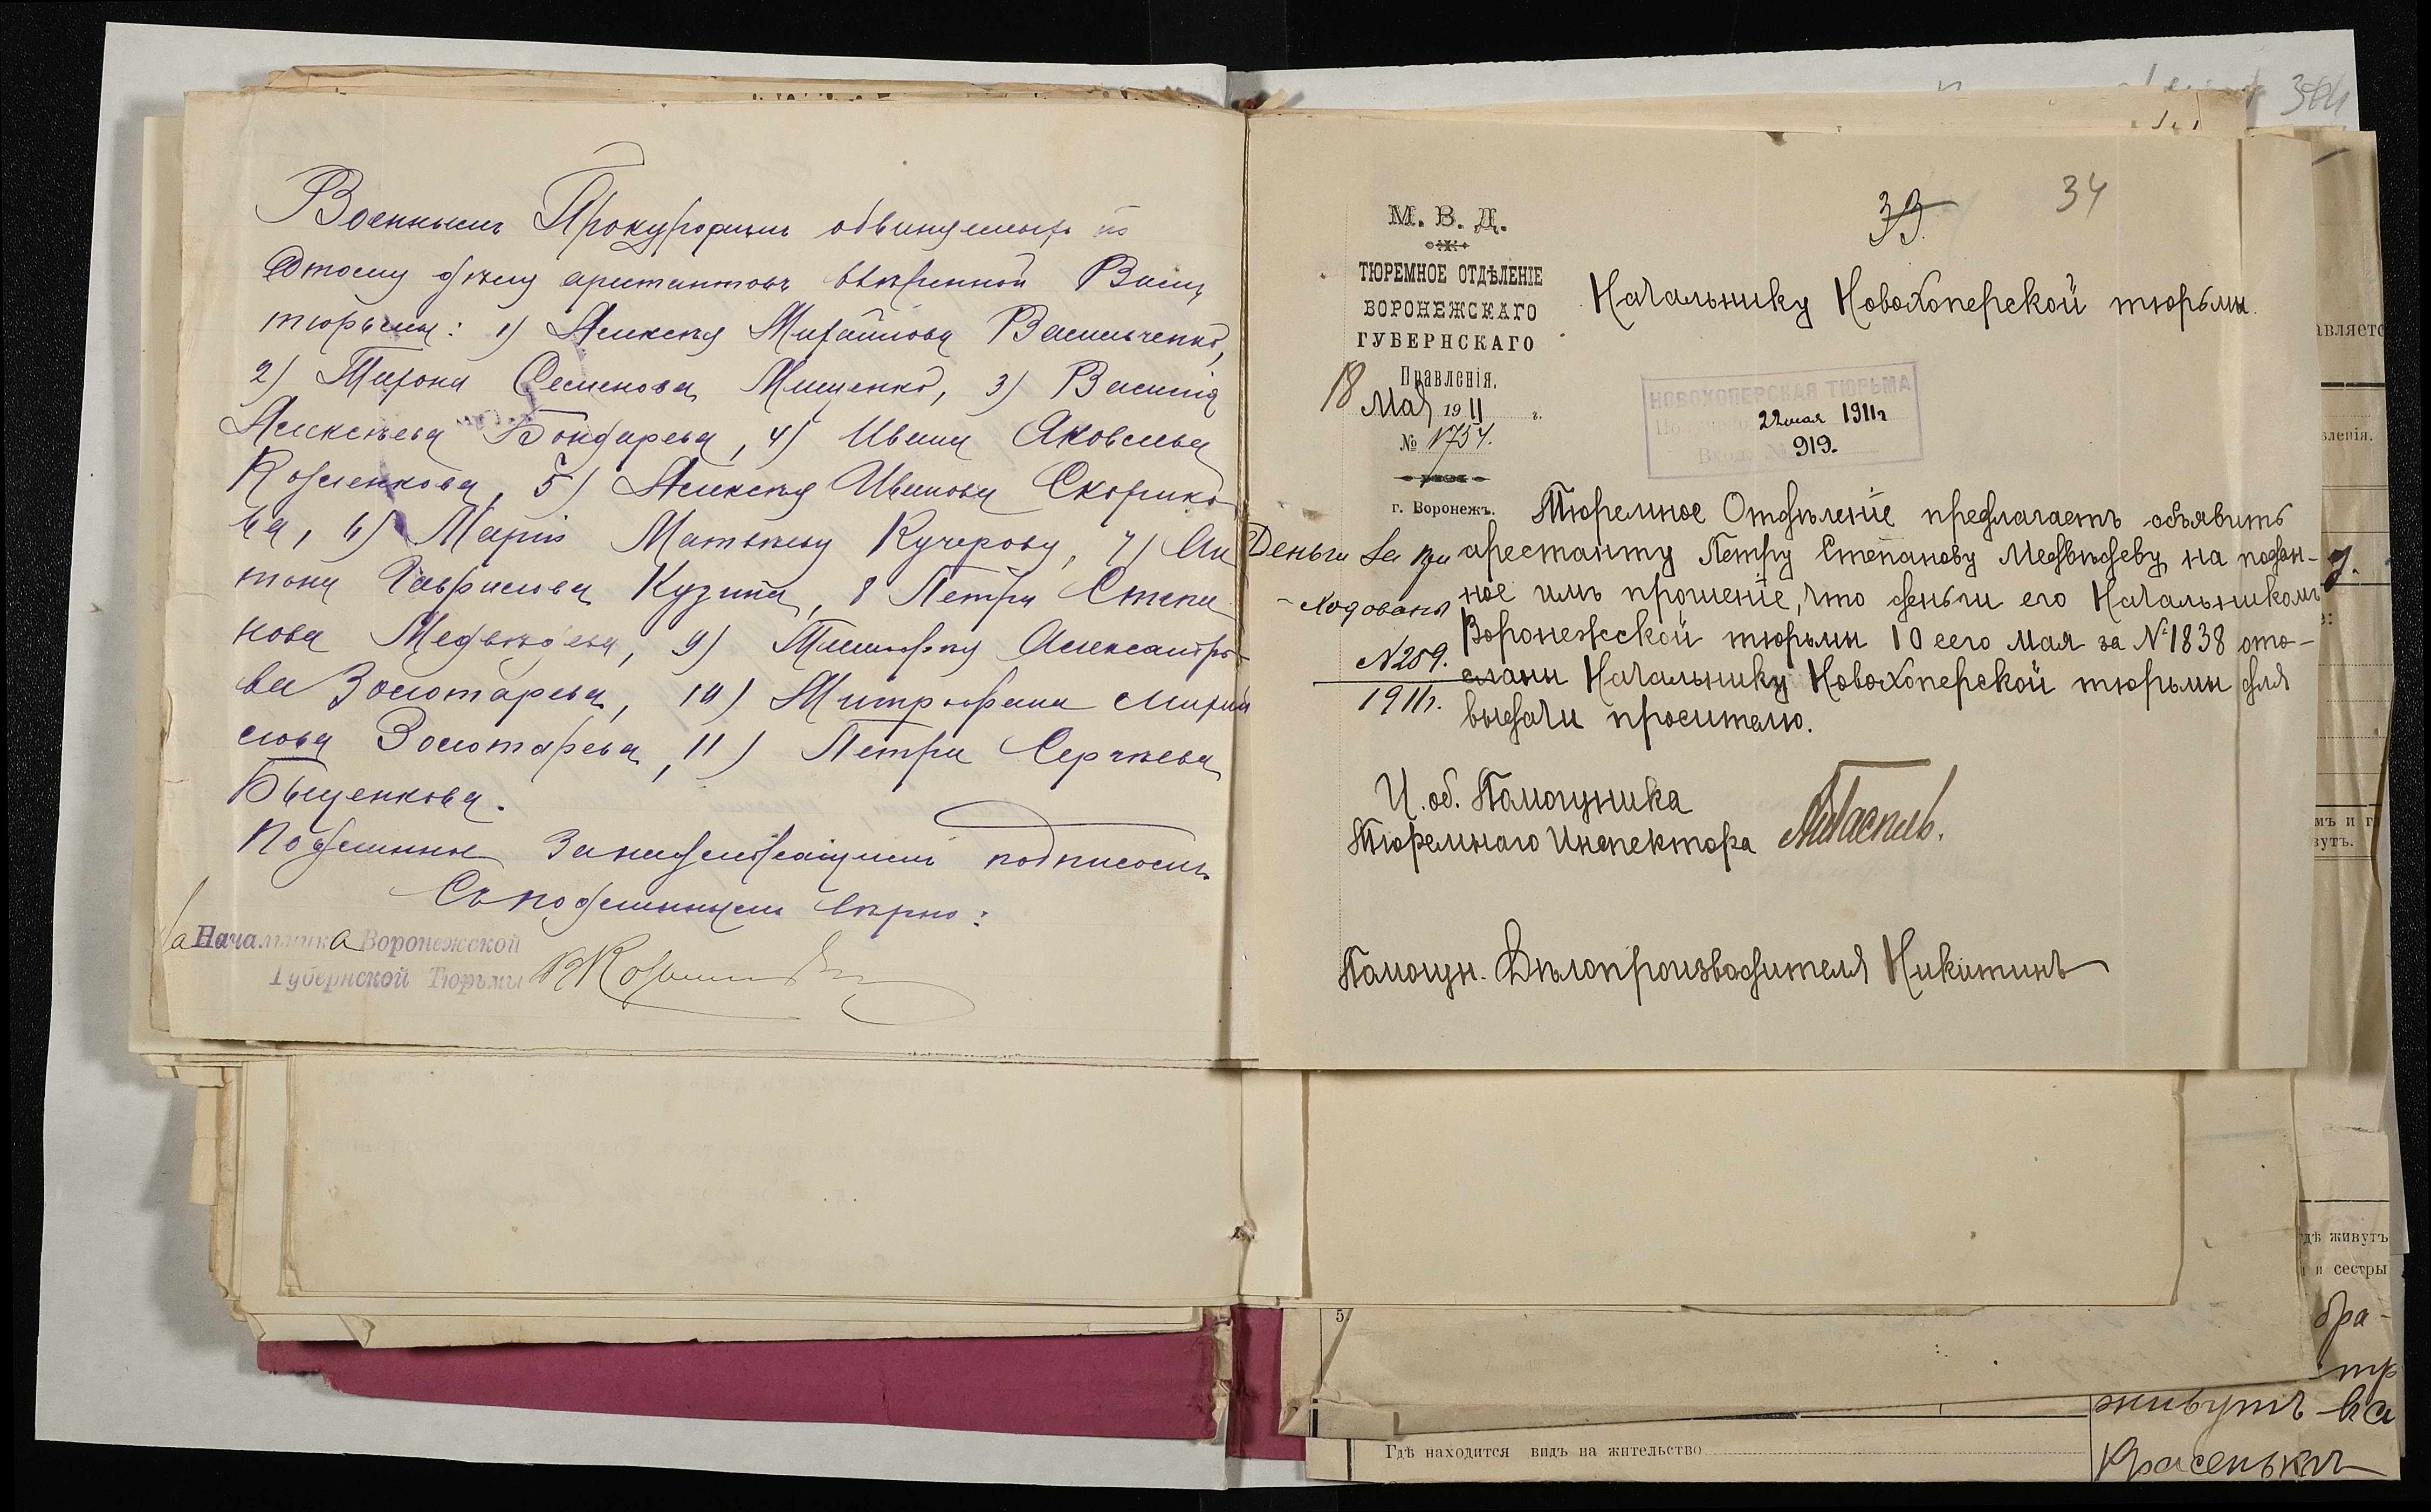 Военнымъ Прокуроромъ обвиняемыхъ по
этому дѣлу арестантовъ ввѣренной Вамъ
тюрьмы: 1) Алексѣя Михайлова Васильченко,
2) Тихона Семенова Мищенко, 3) Василія
Алексѣева Бондарева, 4) Ивана Яковлева
Козленкова, 5) Алексѣя Иванова Скорико-
ва, 6) Марію Матвѣеву Кучерову, 7) Ан
тона Гаврилова Кузина, 8 Петра Степа
нова Медвѣдева, 9) Тимофея Александро-
ва Золотарева, 10) Митрофана Михай
лова Золотарева, 11) Петра Сергѣева
Быщенкова.
Подлинное за надлежащимъ подписомъ.
Съ подлиннымъ вѣрно:
За Начальника Воронежской
Губернской Тюрьмы
34
33
М. В. Д.
ТЮРЕМНОЕ ОТДѢЛЕНІЕ
ВОРОНЕЖСКАГО
ГУБЕРНСКАГО
Правленія.
18 Мая 1911 г.
№ 1754.
г. Воронежъ.
Начальнику Новохоперской тюрьмы.
НОВОХОПЕРСКАЯ ТЮРЬМА
22 мая 1911 г
Вход. № 919.
Тюремное Отдѣленіе предлагаетъ объявить
арестанту Петру Степанову Медвѣдеву, на подан-
ное имъ прошеніе, что деньги его Начальникомъ
Воронежской тюрьмы 10 сего Мая за № 1838 ото-
сланы Начальнику Новохоперской тюрьмы для
выдачи просителю.
Деньги за при
-ходованы
№ 259.
1911 г.
И. об. Помощника
Тюремнаго Инспектора
Помощн. Дѣлопроизводителя Никитинъ
вляетс
вленія.
мъ и г
вутъ.
дѣ живутъ
и сестры
бра-
тр
5.
живутъ
Гдѣ находится видъ на жительство